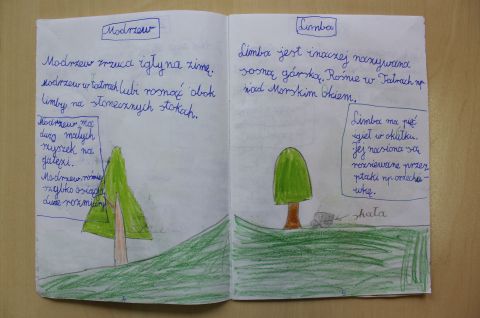 Modrzew
Modrzew zrzuca igły na zimę.
Modrzew w tatrach lubi rosnąć obok
limby na słonecznych stokach.
Modrzew ma
dużo małych
szyszek na
gałęzi.
Modrzew rośnie
szybko osiąga
duże rozmiary
Limba
Limba jest inaczej nazywana
sosną górską. Rośnie w Tatrach np.
nad Morskim Okiem.
Limba ma pięć
igieł w okółku.
Jej nasiona są
rozsiewane przez
ptaki np. orzechó-
wkę.
skała